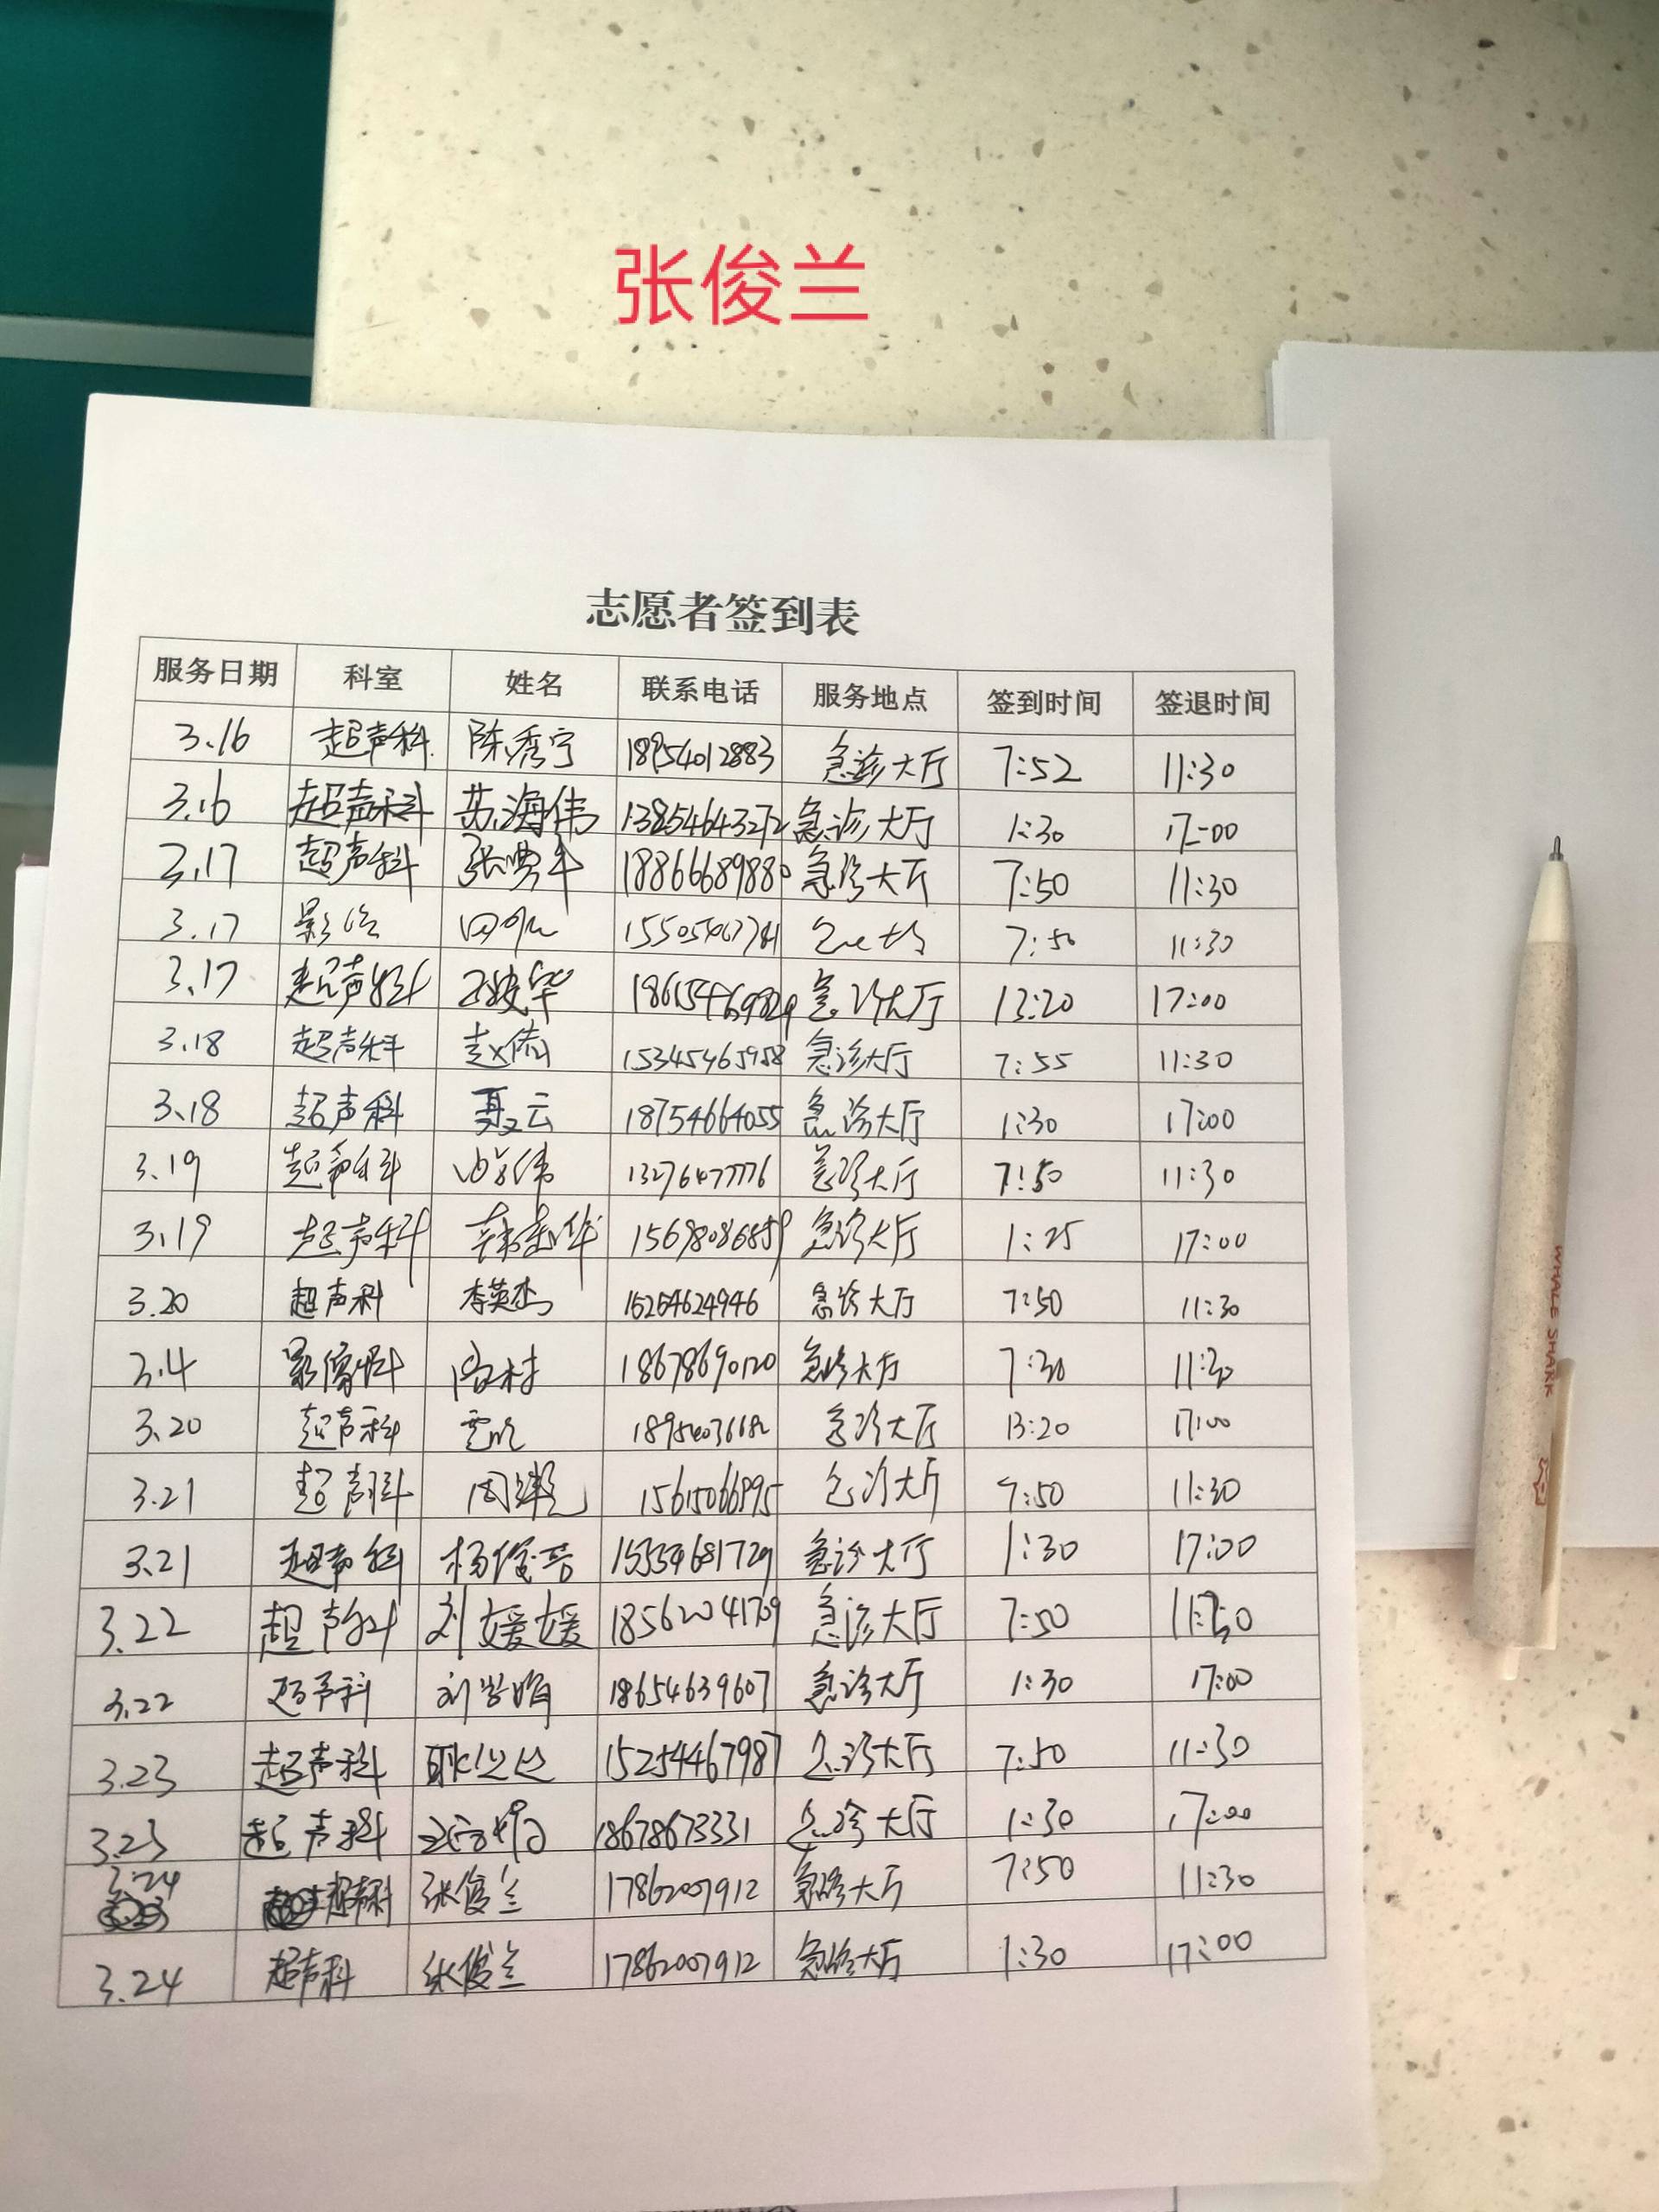 张俊兰
志愿者签到表
服务日期 科室 姓名 联系电话 服务地点 签到时间 签退时间
3.16 超声科 陈秀宁 18954012883 急诊大厅 7:52 11:30
3.16 超声科 苏海伟 13854643272 急诊大厅 1:30 17:00
3.17 超声科 18866689880 急诊大厅 7:50 11:30
3.17 7:50 11:30
3.17 超声科 急诊大厅 13:20 17:00
3.18 超声科 15345465958 急诊大厅 7:55 11:30
3.18 超声科 聂云 18754664055 急诊大厅 1:30 17:00
3.19 超声科 急诊大厅 7:50 11:30
3.19 超声科 急诊大厅 1:25 17:00
3.20 超声科 李英杰 15254624946 急诊大厅 7:50 11:30
3.4 影像科 18678690120 急诊大厅 7:30 11:30
3.20 超声科 急诊大厅 13:20 17:00
3.21 超声科 急诊大厅 7:50 11:30
3.21 超声科 急诊大厅 1:30 17:00
3.22 超声科 刘媛媛 18562041709 急诊大厅 7:50
3.22 超声科 18654639607 急诊大厅 1:30 17:00
3.23 超声科 15254467987 急诊大厅 7:50 11:30
3.23 超声科 18678673331 急诊大厅 1:30 17:00
3.24 超声科 张俊兰 17862007912 急诊大厅 7:50 11:30
3.24 超声科 张俊兰 17862007912 急诊大厅 1:30 17:00
WHALE SHARK